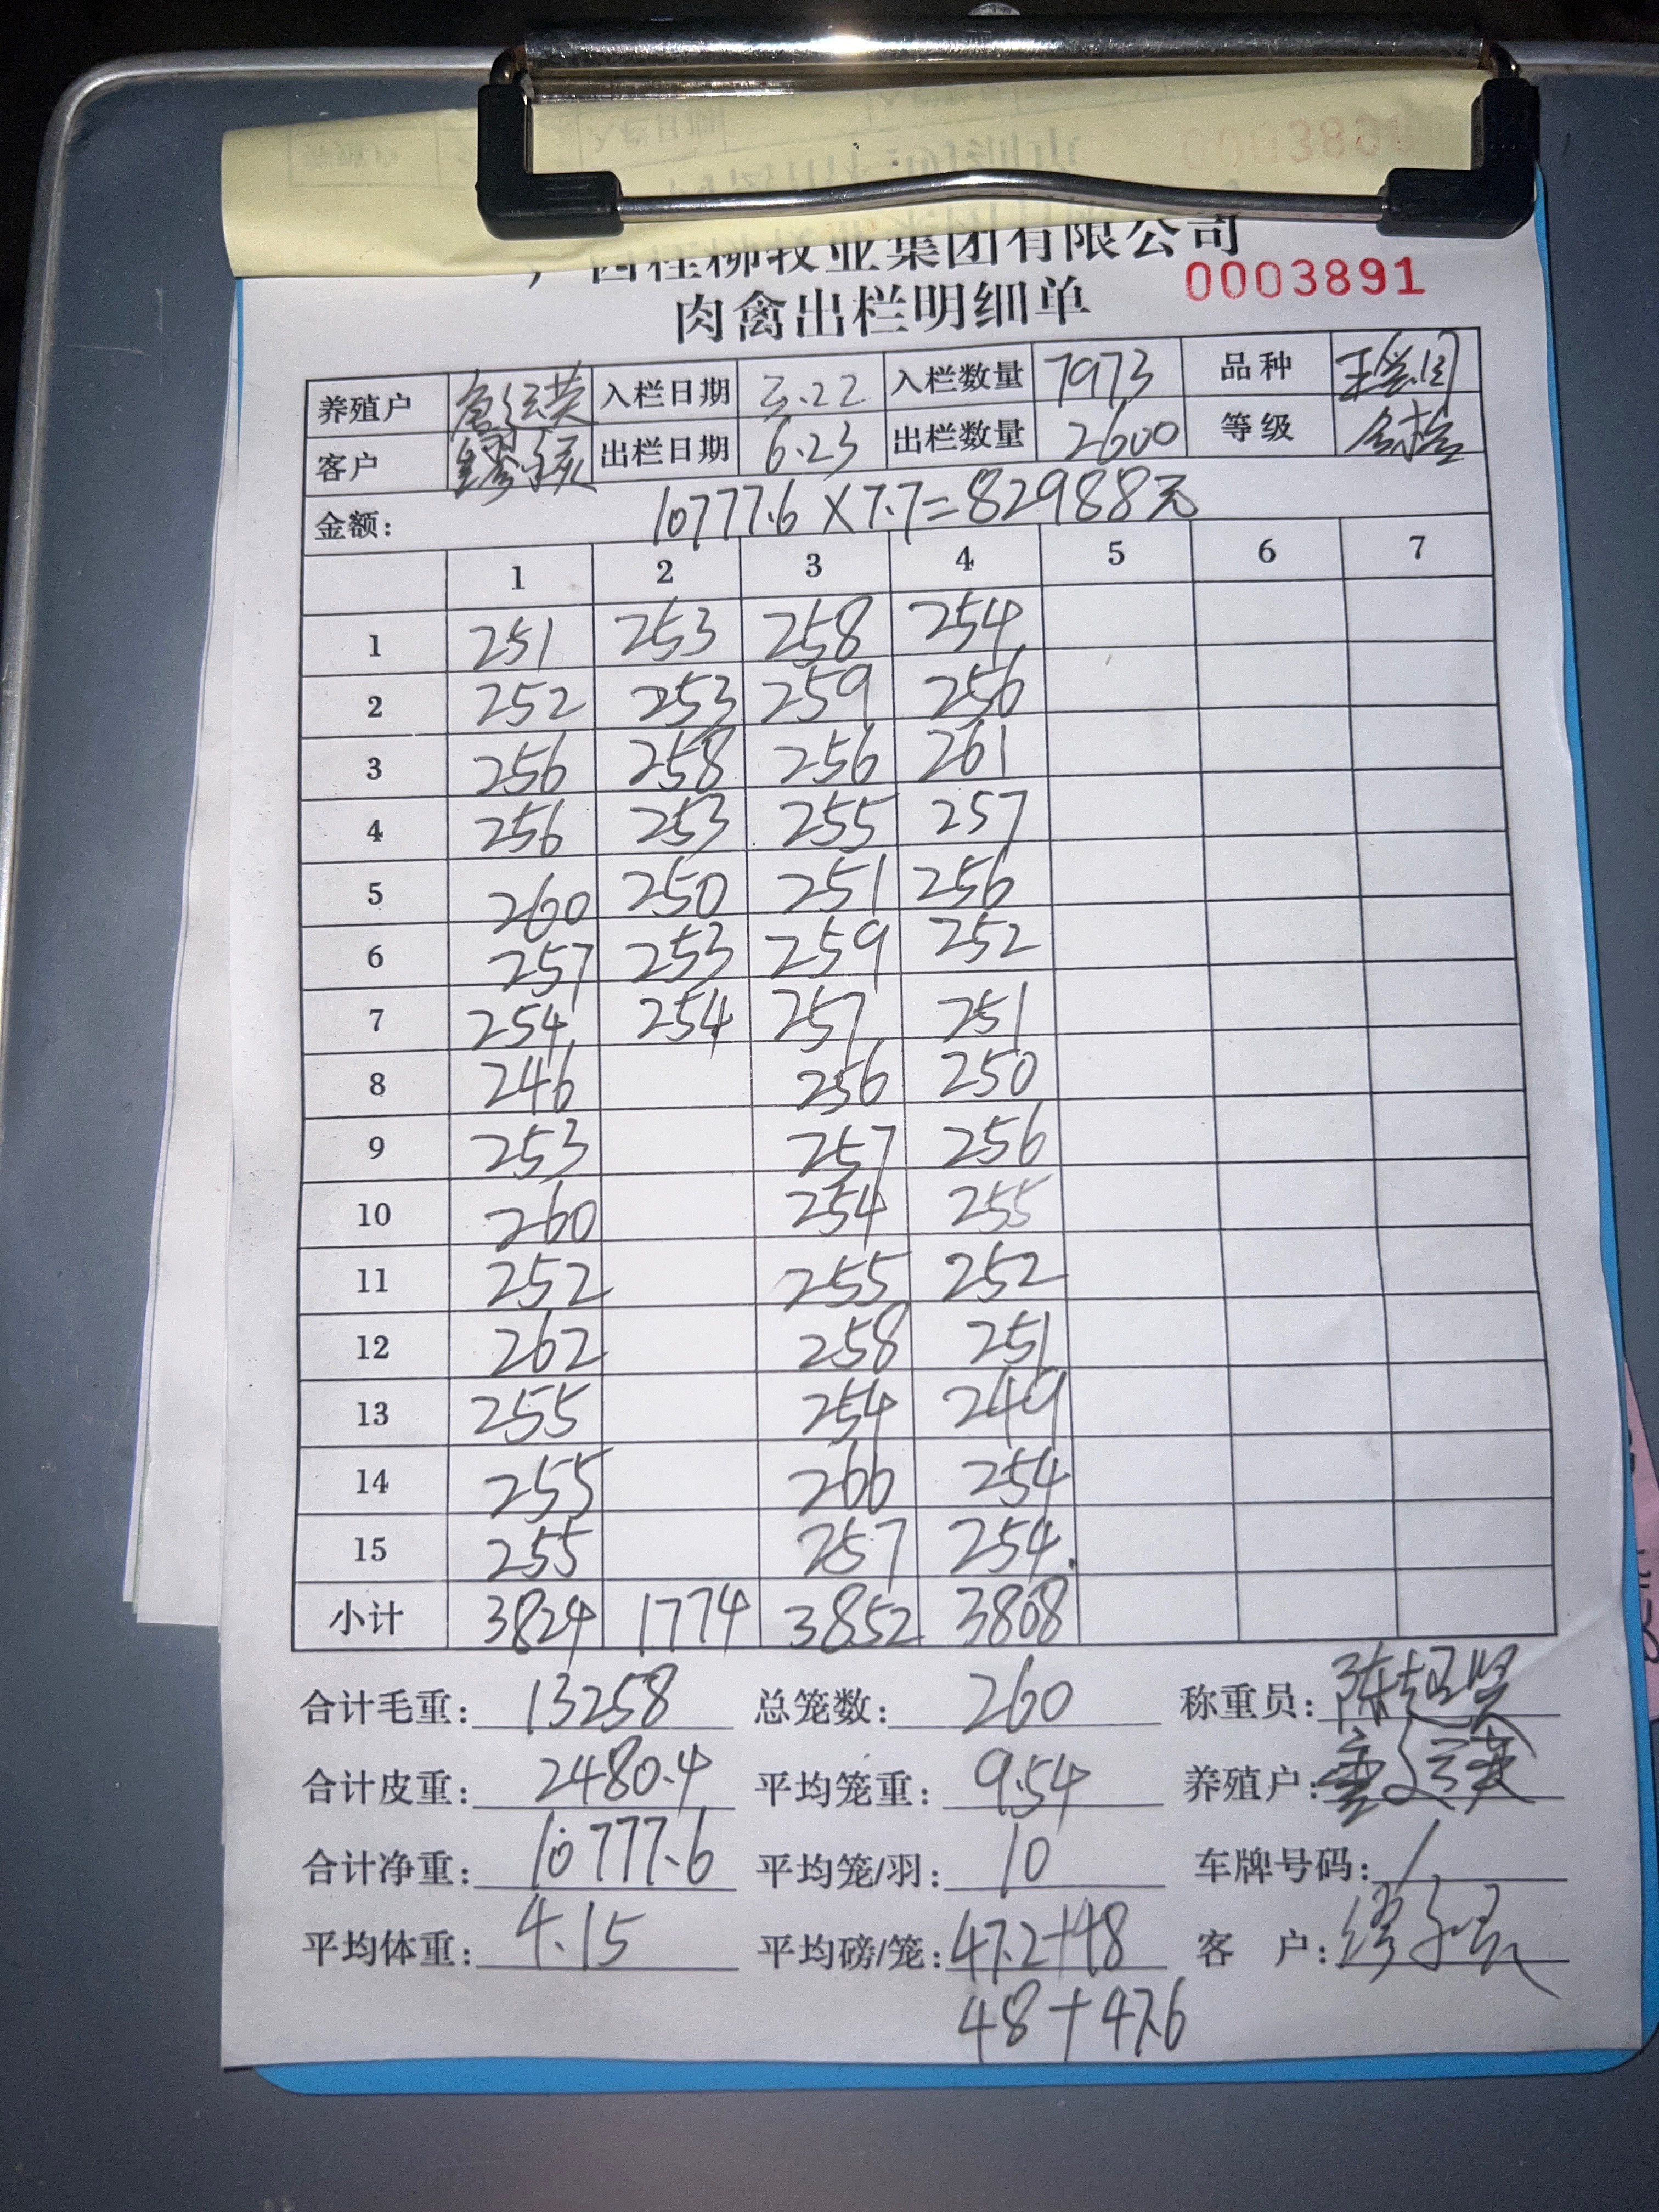 广西桂柳牧业集团有限公司
肉禽出栏明细单 0003891
养殖户 入栏日期 3.22 入栏数量 7973 品种
客户 出栏日期 6.23 出栏数量 2600 等级
金额: 10777.6×7.7=82988元
1 2 3 4 5 6 7
1 251 253 258 254
2 252 253 259 256
3 256 258 256 261
4 256 253 255 257
5 260 250 251 256
6 257 253 259 252
7 254 254 257 251
8 246 256 250
9 253 257 256
10 260 254 255
11 252 255 252
12 262 258 251
13 255 254 249
14 255 266 254
15 255 257 254
小计 3824 1774 3852 3808
合计毛重: 13258 总笼数: 260 称重员: 陈超贤
合计皮重: 2480.4 平均笼重: 9.54 养殖户:
合计净重: 10777.6 平均笼/羽: 10 车牌号码: /
平均体重: 4.15 平均磅/笼: 47.2+48 客户:
48+47.6